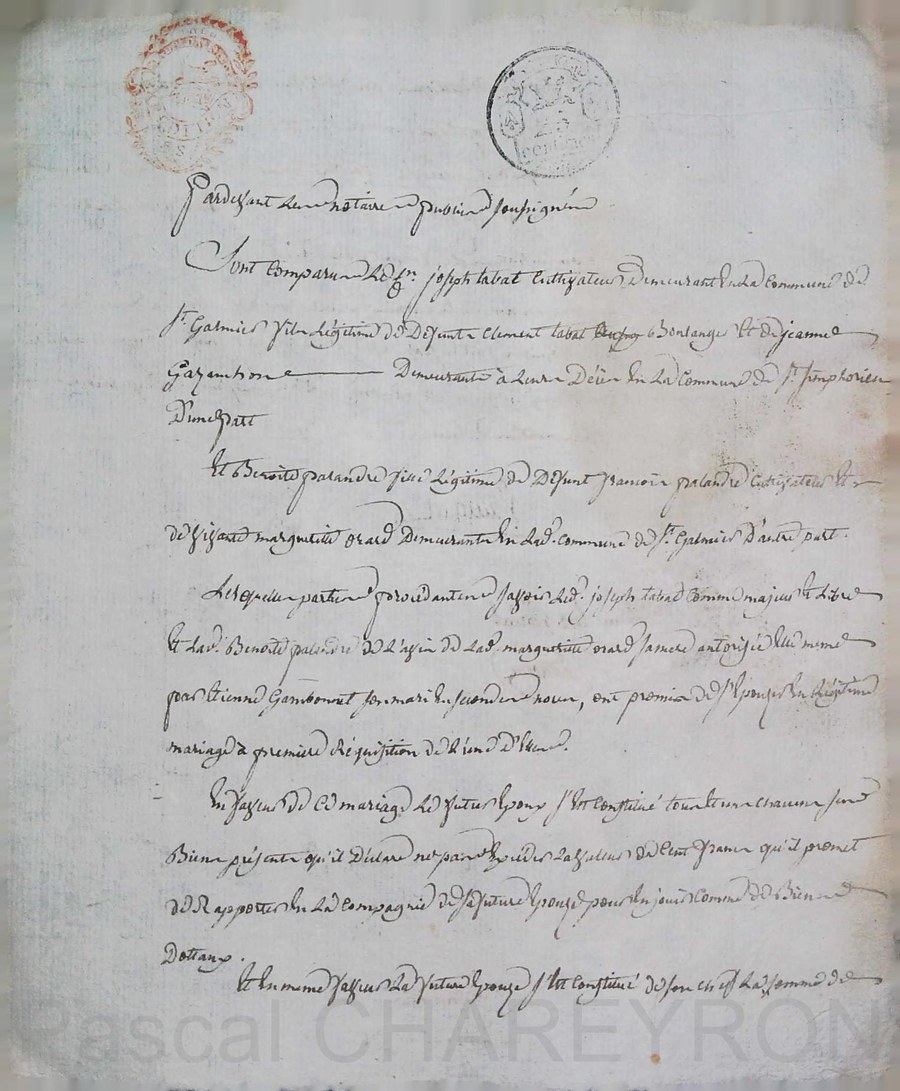 Pardevant les notaires publics soussignés
Sont comparus le Cen. joseph tabat Cultivateur Demeurant En La Commune de
St. Galmier fils Légitime de Défunts Clement tabat Boulanger Et de jeanne
Gazanchon Demeurants à Leurs Décès En La Commune de St. Simphorien
D'une part
Et Benoite palandre fille Légitime de Défunt francois palandre Cultivateur Et
de vivante marguerite orard Demeurante En Lad. commune de St. Galmier D'autre part.
Lesquelles parties procédantes savoir Led. joseph tabat Comme majeur Et Libre
Et Lad. Benoite palandre de L'avis de Lad. marguerite orard sa mere autorisée Elle meme
par Etienne Gambonnet son mari En secondes noces, ont promis de s'Epouser En Légitime
mariage à premiere Réquisition de L'une d'Elles.
En faveur de Ce mariage Le futur Epoux s'Est Constitué tous Et un chacuns ses
Biens présents qu'il Déclare ne pas Exceder La valeur de Cent francs qu'il promet
de Rapporter En La Compagnie de sa future Epouse pour En jouir Comme de Biens
Dottaux.
Et En meme faveur La future Epouse s'Est Constitué de son chef La somme de
Pascal CHAREYRON